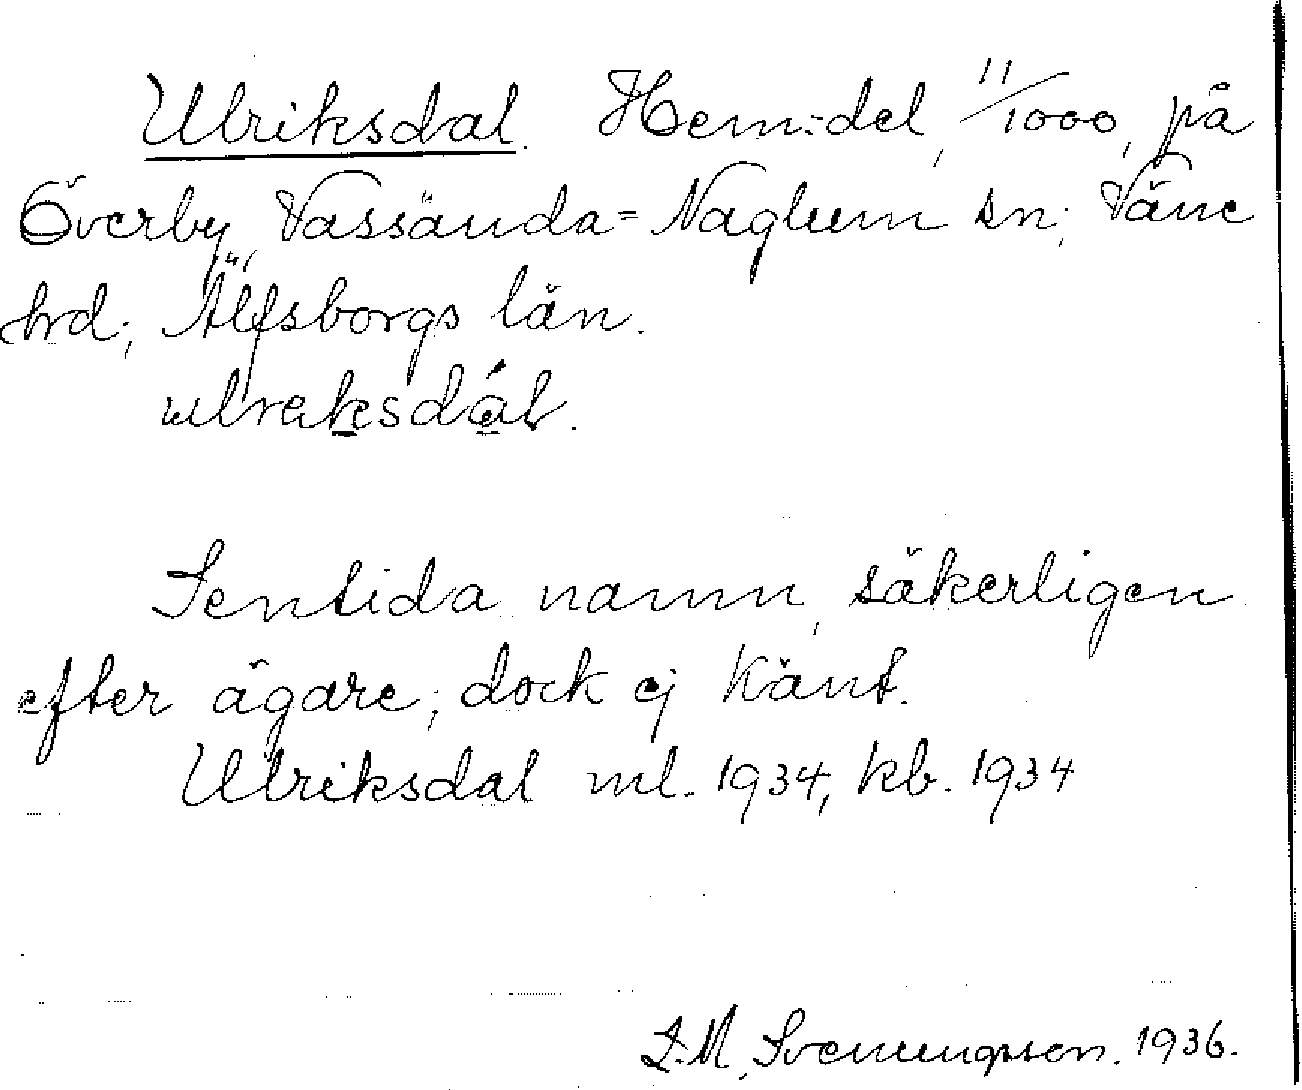 Ulriksdal. Hem:del, 11/1000, på
Överby, Vassända=Naglum sn; Väne
hrd; Älfsborgs län.
ulreksdál.
Sentida namn, säkerligen
efter ägare; dock ej känt.
Ulriksdal ml. 1934, kb. 1934
M. Svenungsson. 1936.